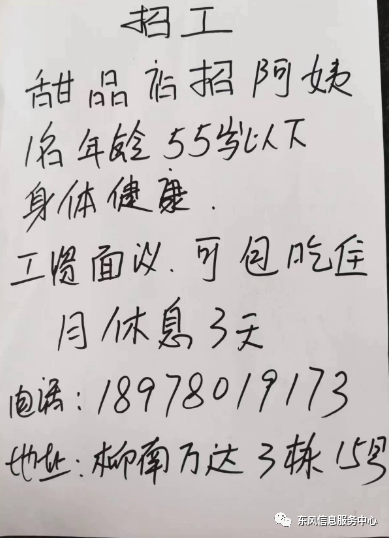 招工
甜品店招阿姨
1名年龄55岁以下
身体健康.
工资面议.可包吃住
月休息3天
电话:18978019173
地址:柳南万达3栋15号
东风信息服务中心